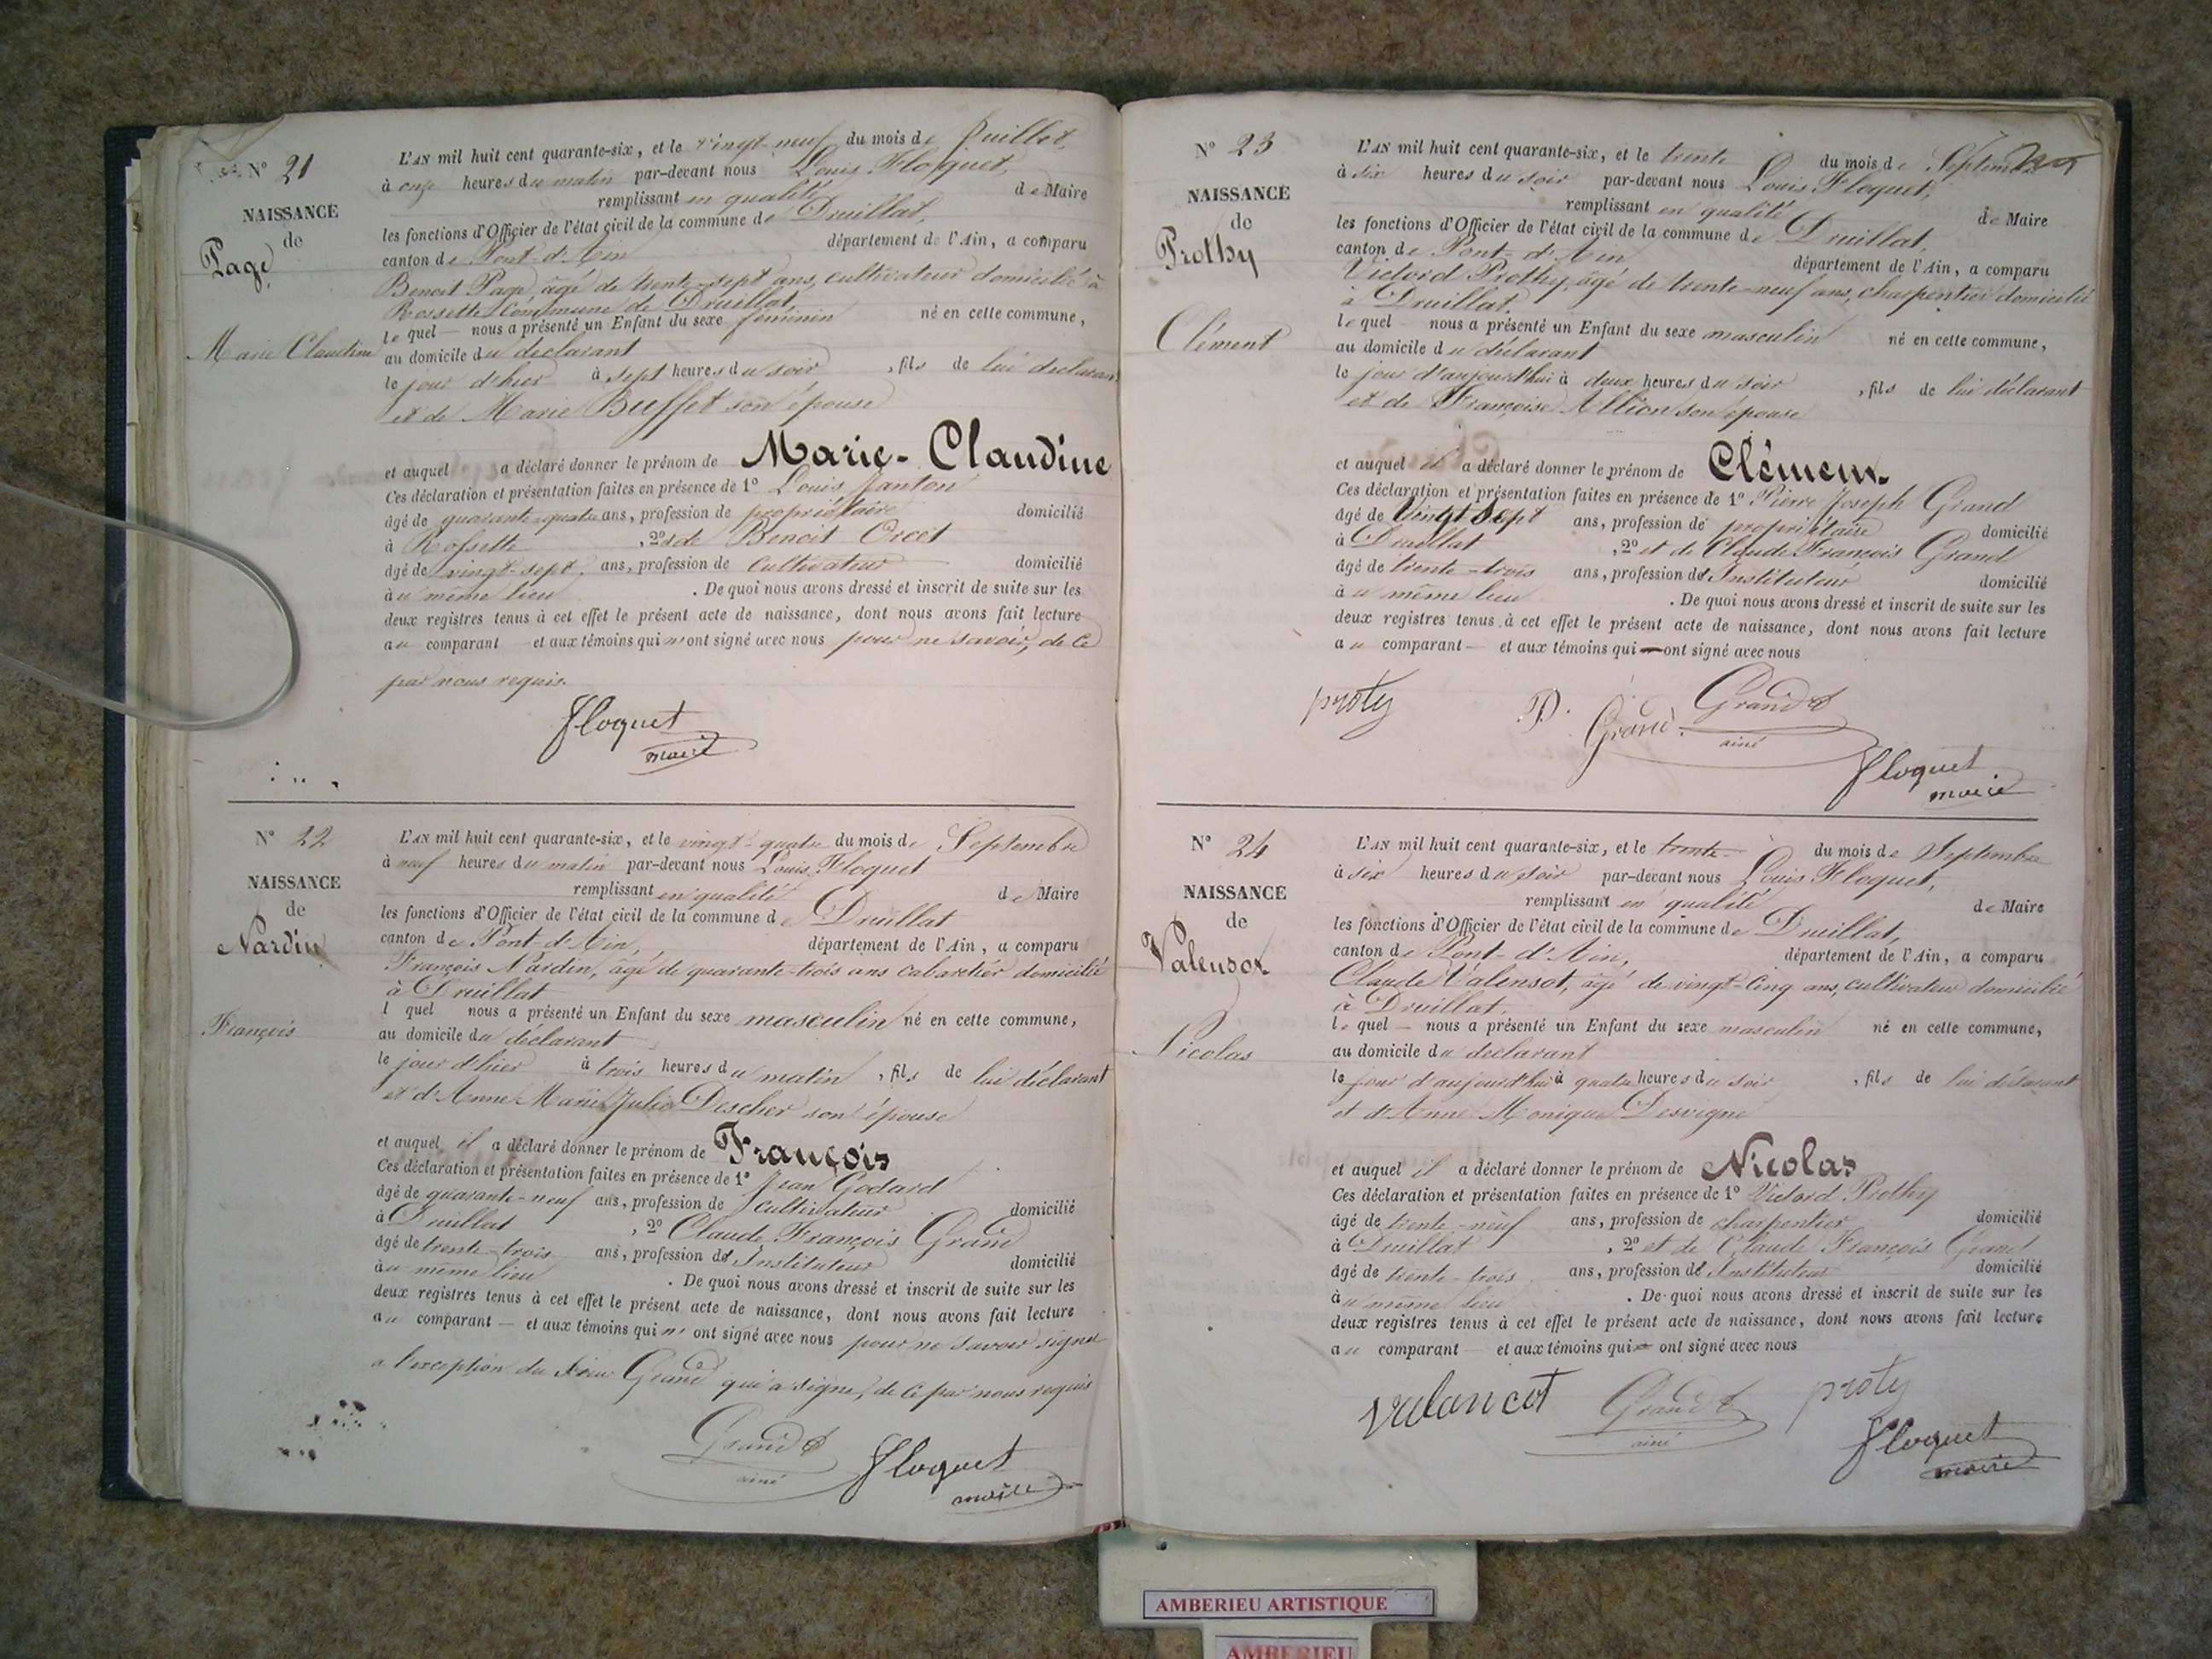 N° 21
NAISSANCE
de
Page
Marie Claudine
L'AN mil huit cent quarante-six, et le vingt-neuf du mois de Juillet,
à onze heures du matin par-devant nous Louis Floquet,
remplissant en qualité de Maire
les fonctions d'Officier de l'état civil de la commune de Druillat,
canton de Pont-d'Ain département de l'Ain, a comparu
Benoit Page, âgé de trente-sept ans, cultivateur domicilié à
Rossettes Commune de Druillat,
le quel — nous a présenté un Enfant du sexe féminin né en cette commune,
au domicile du déclarant
le jour d'hier à sept heures du soir, fils de lui déclarant
et de Marie Buffet son épouse
et auquel a déclaré donner le prénom de Marie-Claudine
Ces déclaration et présentation faites en présence de 1° Louis Janton
âgé de quarante-quatre ans, profession de propriétaire domicilié
à Rossette, 2° de Benoit Orcet
âgé de vingt-sept, ans, profession de Cultivateur domicilié
au même lieu. De quoi nous avons dressé et inscrit de suite sur les
deux registres tenus à cet effet le présent acte de naissance, dont nous avons fait lecture
au comparant — et aux témoins qui n'ont signé avec nous pour ne savoir, de ce
par nous requis.
Floquet
maire
N° 22
NAISSANCE
de
Nardin
François
L'AN mil huit cent quarante-six, et le vingt-quatre du mois de Septembre
à neuf heures du matin par-devant nous Louis Floquet
remplissant en qualité de Maire
les fonctions d'Officier de l'état civil de la commune de Druillat
canton de Pont-d'Ain, département de l'Ain, a comparu
François Nardin, âgé de quarante-trois ans cabaretier domicilié
à Druillat
l quel nous a présenté un Enfant du sexe masculin né en cette commune,
au domicile du déclarant
le jour d'hier à trois heures du matin, fils de lui déclarant
et d'Anne Marie Julie Descher son épouse
et auquel il a déclaré donner le prénom de François
Ces déclaration et présentation faites en présence de 1° Jean Godard
âgé de quarante-neuf ans, profession de Cultivateur domicilié
à Druillat, 2° Claude François Grand
âgé de trente-trois ans, profession d'Instituteur domicilié
au même lieu. De quoi nous avons dressé et inscrit de suite sur les
deux registres tenus à cet effet le présent acte de naissance, dont nous avons fait lecture
au comparant — et aux témoins qui n'ont signé avec nous pour ne savoir signer
a l'exception du Sieur Grand qui a signé, de ce par nous requis
Grand
ainé
Floquet
maire
N° 23
NAISSANCE
de
Prothy
Clément
L'AN mil huit cent quarante-six, et le trente du mois de Septembre
à six heures du soir par-devant nous Louis Floquet,
remplissant en qualité de Maire
les fonctions d'Officier de l'état civil de la commune de Druillat,
canton de Pont-d'Ain département de l'Ain, a comparu
Victord Prothy, âgé de trente-neuf ans, charpentier domicilié
à Druillat.
le quel nous a présenté un Enfant du sexe masculin né en cette commune,
au domicile du déclarant
le jour d'aujourd'hui à deux heures du soir, fils de lui déclarant
et de Françoise Allion son épouse
et auquel il a déclaré donner le prénom de Clément
Ces déclaration et présentation faites en présence de 1° Pierre Joseph Grand
âgé de Vingt Sept ans, profession de propriétaire domicilié
à Druillat, 2° et de Claude François Grand
âgé de trente-trois ans, profession d'Instituteur domicilié
au même lieu. De quoi nous avons dressé et inscrit de suite sur les
deux registres tenus à cet effet le présent acte de naissance, dont nous avons fait lecture
au comparant — et aux témoins qui — ont signé avec nous
proty P. Grand. Grand
ainé
Floquet
maire
N° 24
NAISSANCE
de
Valensot
Nicolas
L'AN mil huit cent quarante-six, et le trente du mois de Septembre
à six heures du soir par-devant nous Louis Floquet,
remplissant en qualité de Maire
les fonctions d'Officier de l'état civil de la commune de Druillat,
canton de Pont-d'Ain, département de l'Ain, a comparu
Claude Valensot, âgé de vingt-cinq ans, cultivateur domicilié
à Druillat.
le quel — nous a présenté un Enfant du sexe masculin né en cette commune,
au domicile du déclarant
le jour d'aujourd'hui à quatre heures du soir, fils de lui déclarant
et d'Anne Monique Desvigne
et auquel il a déclaré donner le prénom de Nicolas
Ces déclaration et présentation faites en présence de 1° Victord Prothy
âgé de trente-neuf ans, profession de charpentier domicilié
à Druillat, 2° et de Claude François Grand
âgé de trente-trois ans, profession d'Instituteur domicilié
au même lieu. De quoi nous avons dressé et inscrit de suite sur les
deux registres tenus à cet effet le présent acte de naissance, dont nous avons fait lecture
au comparant — et aux témoins qui — ont signé avec nous
Valancot Grand proty
ainé
Floquet
maire
AMBERIEU ARTISTIQUE
AMBERIEU